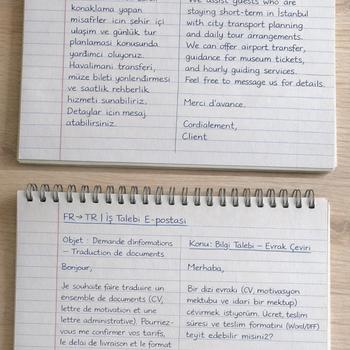 konaklama yapan
misafirler icin şehir içi
ulaşım ve günlük tur
planlaması konusunda
yardımcı oluyoruz.
Havalimanı transferi,
müze bileti yönlendirmesi
ve saatlik rehberlik
hizmeti sunabiliriz.
Detaylar için mesaj
atabilirsiniz.
We assist guests who are
staying short-term in İstanbul
with city transport planning
and daily tour arrangements.
We can offer airport transfer,
guidance for museum tickets,
and hourly guiding services.
Feel free to message us for details.
Merci d'avance.
Cordialement,
Client
FR→TR | İş Talebi E-postası
Objet : Demande dinformations
– Traduction de documents
Bonjour,
Je souhaite faire traduire un
ensemble de documents (CV,
lettre de motivation et une
lettre administrative). Pourriez-
vous me confirmer vos tarifs,
le delai de livraison et le format
Konu: Bilgi Talebi – Evrak Çeviri
Merhaba,
Bir dizi evrakı (CV, motivasyon
mektubu ve idari bir mektup)
çevirmek istiyorum. Ücret, teslim
süresi ve teslim formatını (Word/PDF)
teyit edebilir misiniz?